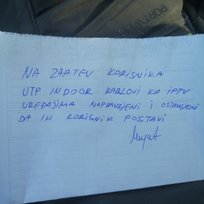 NA ZAHTEV KORISNIKA
UTP INDOOR KABLOVI KA IPTV
UREĐAJIMA NAPRAVLJENI I OSTAVLJENI
DA IH KORISNIK POSTAVI